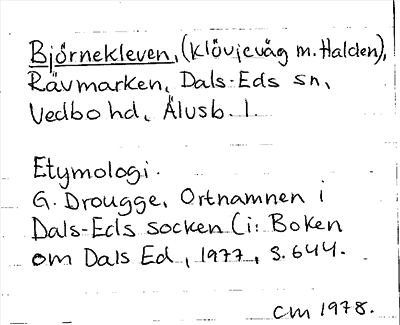 Björnekleven, (klövjeväg m. Halden),
Rävmarken, Dals-Eds sn,
Vedbo hd, Älvsb. l.
Etymologi.
G. Drougge, Ortnamnen i
Dals-Eds socken (i: Boken
om Dals Ed, 1977, s. 644.
CM 1978.